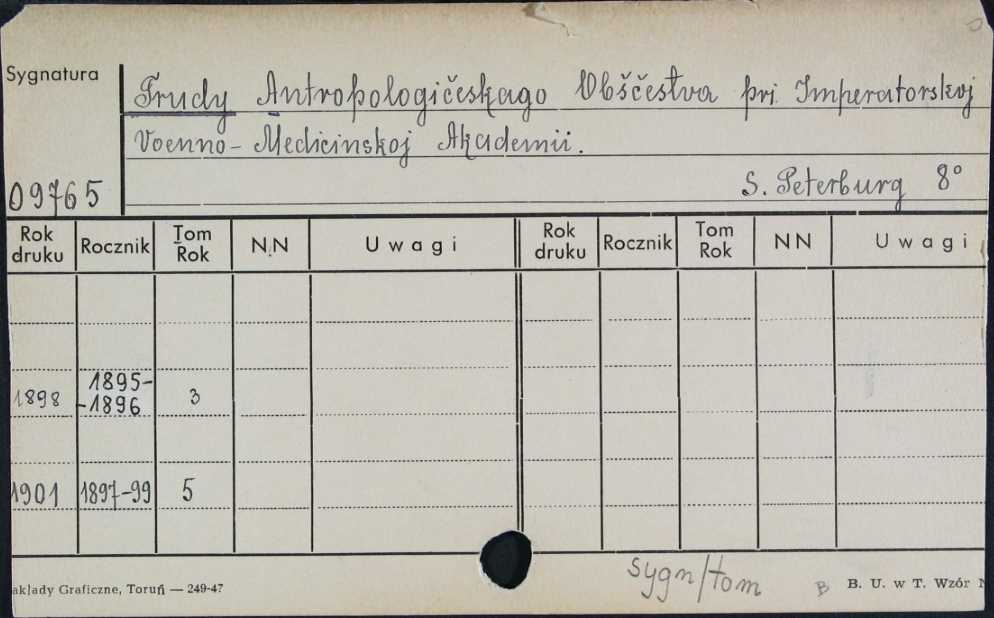 Sygnatura
Trudy Antropologičeskago Obščestva pri Imperatorskoj
Voenno-Medicinskoj Akademii.
09765
S. Peterburg 8°
Rok druku Rocznik Tom Rok NN Uwagi Rok druku Rocznik Tom Rok NN Uwagi
1898 1895-
-1896 3
1901 1897-99 5
sygn/tom
akłady Graficzne, Toruń — 249-47 B B. U. w T. Wzór